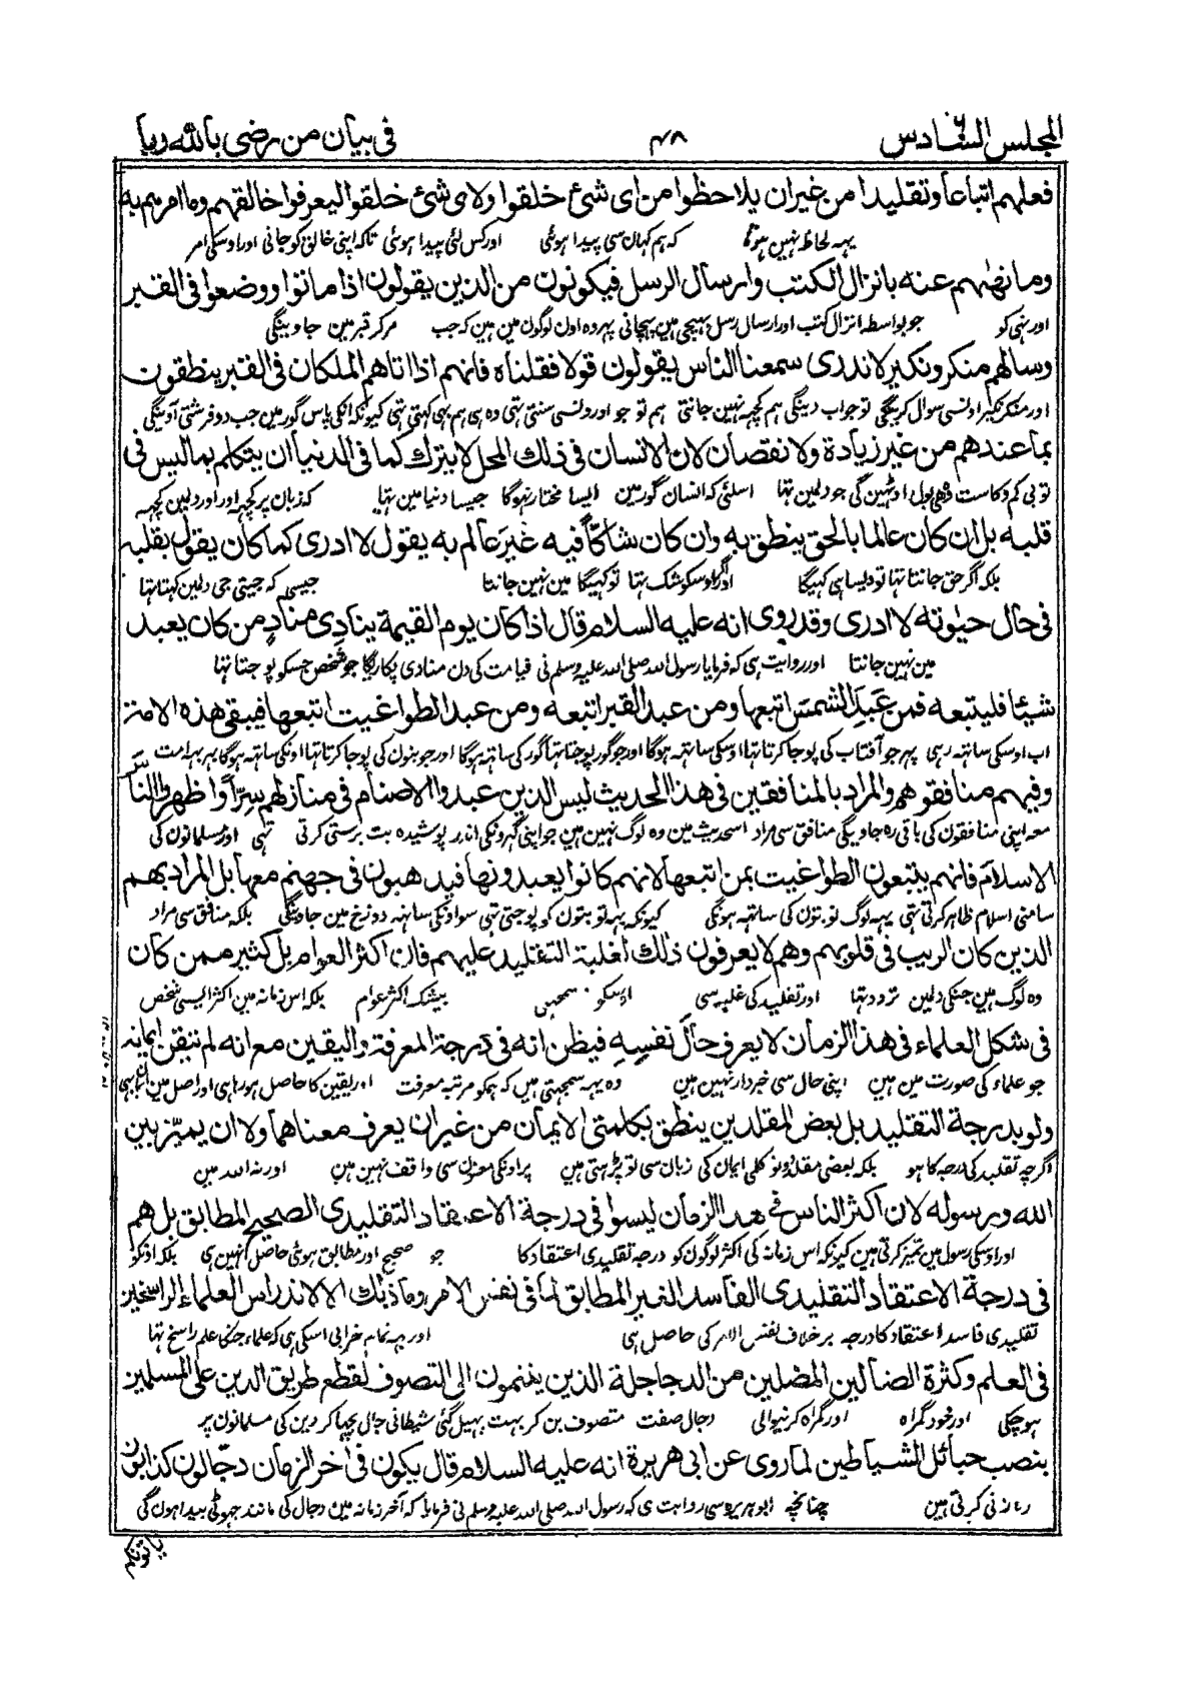 المجلس السادس ۴۸ فى بيان من رضى بالله ربا
فعلهم اتباعا وتقليدا من غيران يلاحظوا من اى شئ خلقوا ولاى شئ خلقوا ليعرفوا خالقهم وما امرهم به
يہہ لحاظ نہين ہوتا کہ ہم کہان سی پيدا ہوئی اور کس لئی پيدا ہوئی تاکہ اپنی خالق کو جانی اور اوسکی امر
وما نهٰىهم عنه بانزال الكتب وارسال الرسل فيكونون من الذين يقولون اذا ماتوا ووضعوا فى القبر
اور نہی کو جو بواسطہ انزال کتب اور ارسال رسل بہيجی ہين پہچانی پہر وہ اون لوگون مين ہين کہ جب مر کر قبر مين جاوينگی
وسالهم منكر ونكير لا ندرى سمعنا الناس يقولون قولا فقلناه فانهم اذا اتاهم الملكان فى القبر ينطقون
اور منکر نکير اونسی سوال کرينگی تو جواب دينگی ہم کچہہ نہين جانتی ہم تو جو اورونسی سنتی تہی وہ ہی ہم بہی کہتی تہی کيونکہ انکی پاس گور مين جب دو فرشتی آوينگی
بما عندهم من غير زيادة ولا نقصان لان الانسان فى ذلك المحل لا يترك كما فى الدنيا ان يتكلم بما ليس فى
تو بی کم و کاست وہی بول اوٹہين گی جو دلمين تہا اسلئی کہ انسان گور مين ايسا مختار نہوگا جيسا دنيا مين تہا کہ زبان پر کچہہ اور اور دلمين کچہہ
قلبه بل ان كان عالما بالحق ينطق به وان كان شاكّا فيه غير عالم به يقول لا ادرى كما كان يقول بقلبه
بلکہ اگر حق جانتا تہا تو ويسا ہی کہيگا اور اگر اوسکو شک تہا تو کہيگا مين نہين جانتا جيسی کہ جيتی جی دلمين کہتا تہا
فى حال حيٰوته لا ادرى وقد روى انه عليه السلام قال اذا كان يوم القيمة ينادى منادٍ من كان يعبد
مين نہين جانتا اور روايت ہی کہ فرمايا رسول اللہ صلی اللہ عليہ وسلم نی قيامت کی دن منادی پکاريگا جو شخص جسکو پوجتا تہا
شيئا فليتبعه فمن عبد الشمس اتبعها ومن عبد القبر اتبعه ومن عبد الطواغيت اتبعها فيبقى هذه الامة
اب اوسکی ساتہہ رہی پہر جو آفتاب کی پوجا کرتا تہا اوسکی ساتہہ ہوگا اور جو گور پوجتا تہا گور کی ساتہہ ہوگا اور جو بتون کی پوجا کرتا تہا اونکی ساتہہ ہوگا پہر يہہ امت
وفيهم منافقوهم والمراد بالمنافقين فى هذا الحديث ليس الذين عبدوا الاصنام فى منازلهم سرّا واظهروا للناس
معہ اپنی منافقون کی باقی رہ جاويگی منافق سی مراد اسحديث مين وہ لوگ نہين ہين جو اپنی گہرونکی اندر پوشيدہ بت پرستی کرتی تہی اور مسلمانون کی
الاسلام فانهم يتبعون الطواغيت بمن اتبعها لانهم كانوا يعبدونها فيذهبون فى جهنم معها بل المراد بهم
سامنی اسلام ظاہر کرتی تہی يہہ لوگ تو بتون کی ساتہہ ہونگی کيونکہ يہہ تو بتون کو پوجتی تہی سو اونکی ساتہہ دوزخ مين جاوينگی بلکہ منافق سی مراد
الذين كان الريب فى قلوبهم وهم لا يعرفون ذلك لغلبة التقليد عليهم فان اكثر العوام بل كثير ممن كان
وہ لوگ ہين جنکی دلمين تردد تہا اور تقليد کی غلبہ سی اوسکو سمجہی بيشک اکثر عوام بلکہ اس زمانہ مين اکثر ايسی شخص
فى شكل العلماء فى هذا الزمان لا يعرف حال نفسه فيظن انه فى درجة المعرفة واليقين مع انه لم يتيقن ايمانه
جو علماء کی صورت مين ہين اپنی حال سی خبردار نہين ہين وہ يہہ سمجہتی ہين کہ ہمکو مرتبہ معرفت اور يقين کا حاصل ہو رہا ہی اور اصل مين
ولو بدرجة التقليد بل بعض المقلدين ينطق بكلمتى الايمان من غير ان يعرف معناهما ولا ان يميّز بين
اگرچہ تقليد کی درجہ کا ہو بلکہ بعضی مقلد تو دو کلمی ايمان کی زبان سی تو پڑہتی ہين پر اونکی معنون سی واقف نہين ہين اور نہ اللہ مين
الله ورسوله لان اكثر الناس فى هذا الزمان ليسوا فى درجة الاعتقاد التقليدى الصحيح المطابق بل هم
اور اوسکی رسول مين تميز کرتی ہين کيونکہ اس زمانہ کی اکثر لوگون کو درجہ تقليدی اعتقاد کا جو صحيح اور مطابق ہوئی حاصل نہين ہی بلکہ اونکو
فى درجة الاعتقاد التقليدى الفاسد الغير المطابق لما فى نفس الامر وما ذلك الا لاندراس العلماء الراسخين
تقليدی فاسد اعتقاد کا درجہ برخلاف نفس الامر کی حاصل ہی اور يہہ تمام خرابی اسکی ہی کہ علماء جنکا علم راسخ تہا
فى العلم وكثرة الضالين المضلين من الدجاجلة الذين ينتمون الى التصوف لقطع طريق الدين على المسلمين
ہوچکی اور خود گمراہ اور گمراہ کرنيوالی دجال صفت متصوف بن کر بہت پہيل گئی شيطانی جال بچہا کر دين کی مسلمانون پر
بنصب حبائل الشياطين لما روى عن ابى هريرة انه عليه السلام قال يكون فى اخر الزمان دجّالون كذابون
رہزنی کرتی ہين چنانچہ ابو ہريرہ سی روايت ہی کہ رسول اللہ صلی اللہ عليہ وسلم نی فرمايا کہ آخر زمانہ مين دجال کی مانند جہوٹی پيدا ہون گی
ياتونكم